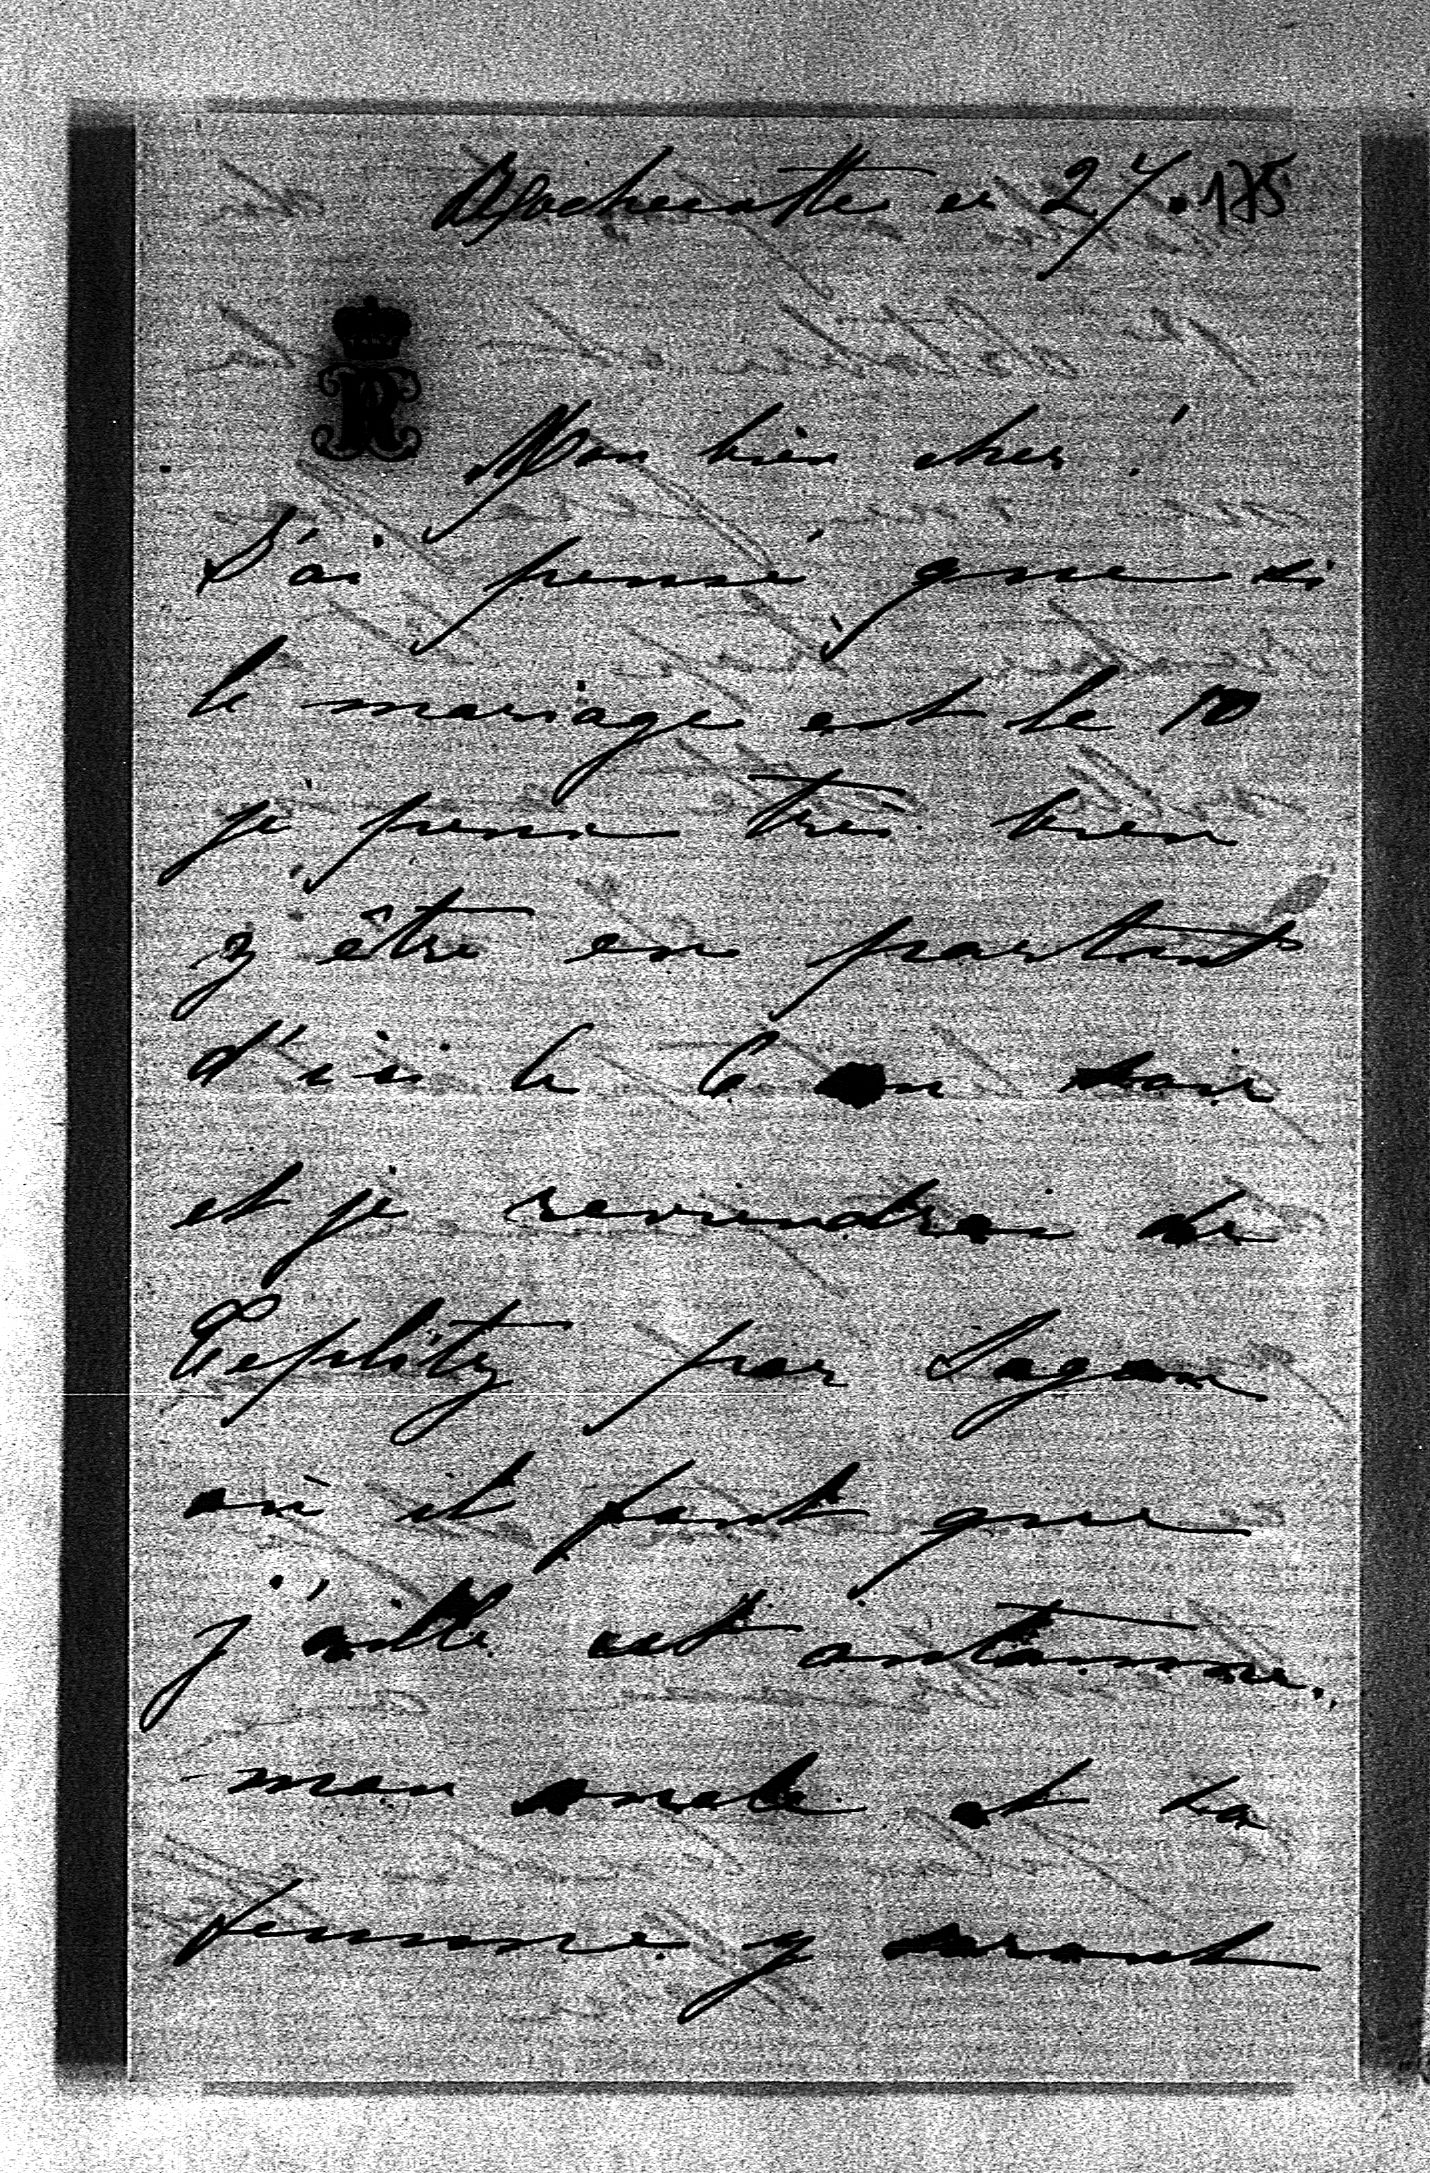 Rochecotte ce 27. 175
R
Mon bien cher!
J'ai pensé que si
le mariage est le 10
je puis très bien
y être en partant
d'ici le 6 au soir
et je reviendrai de
Teplitz par Sagan
où il faut que
j'aille cet automne.
mon oncle et sa
femme y seront